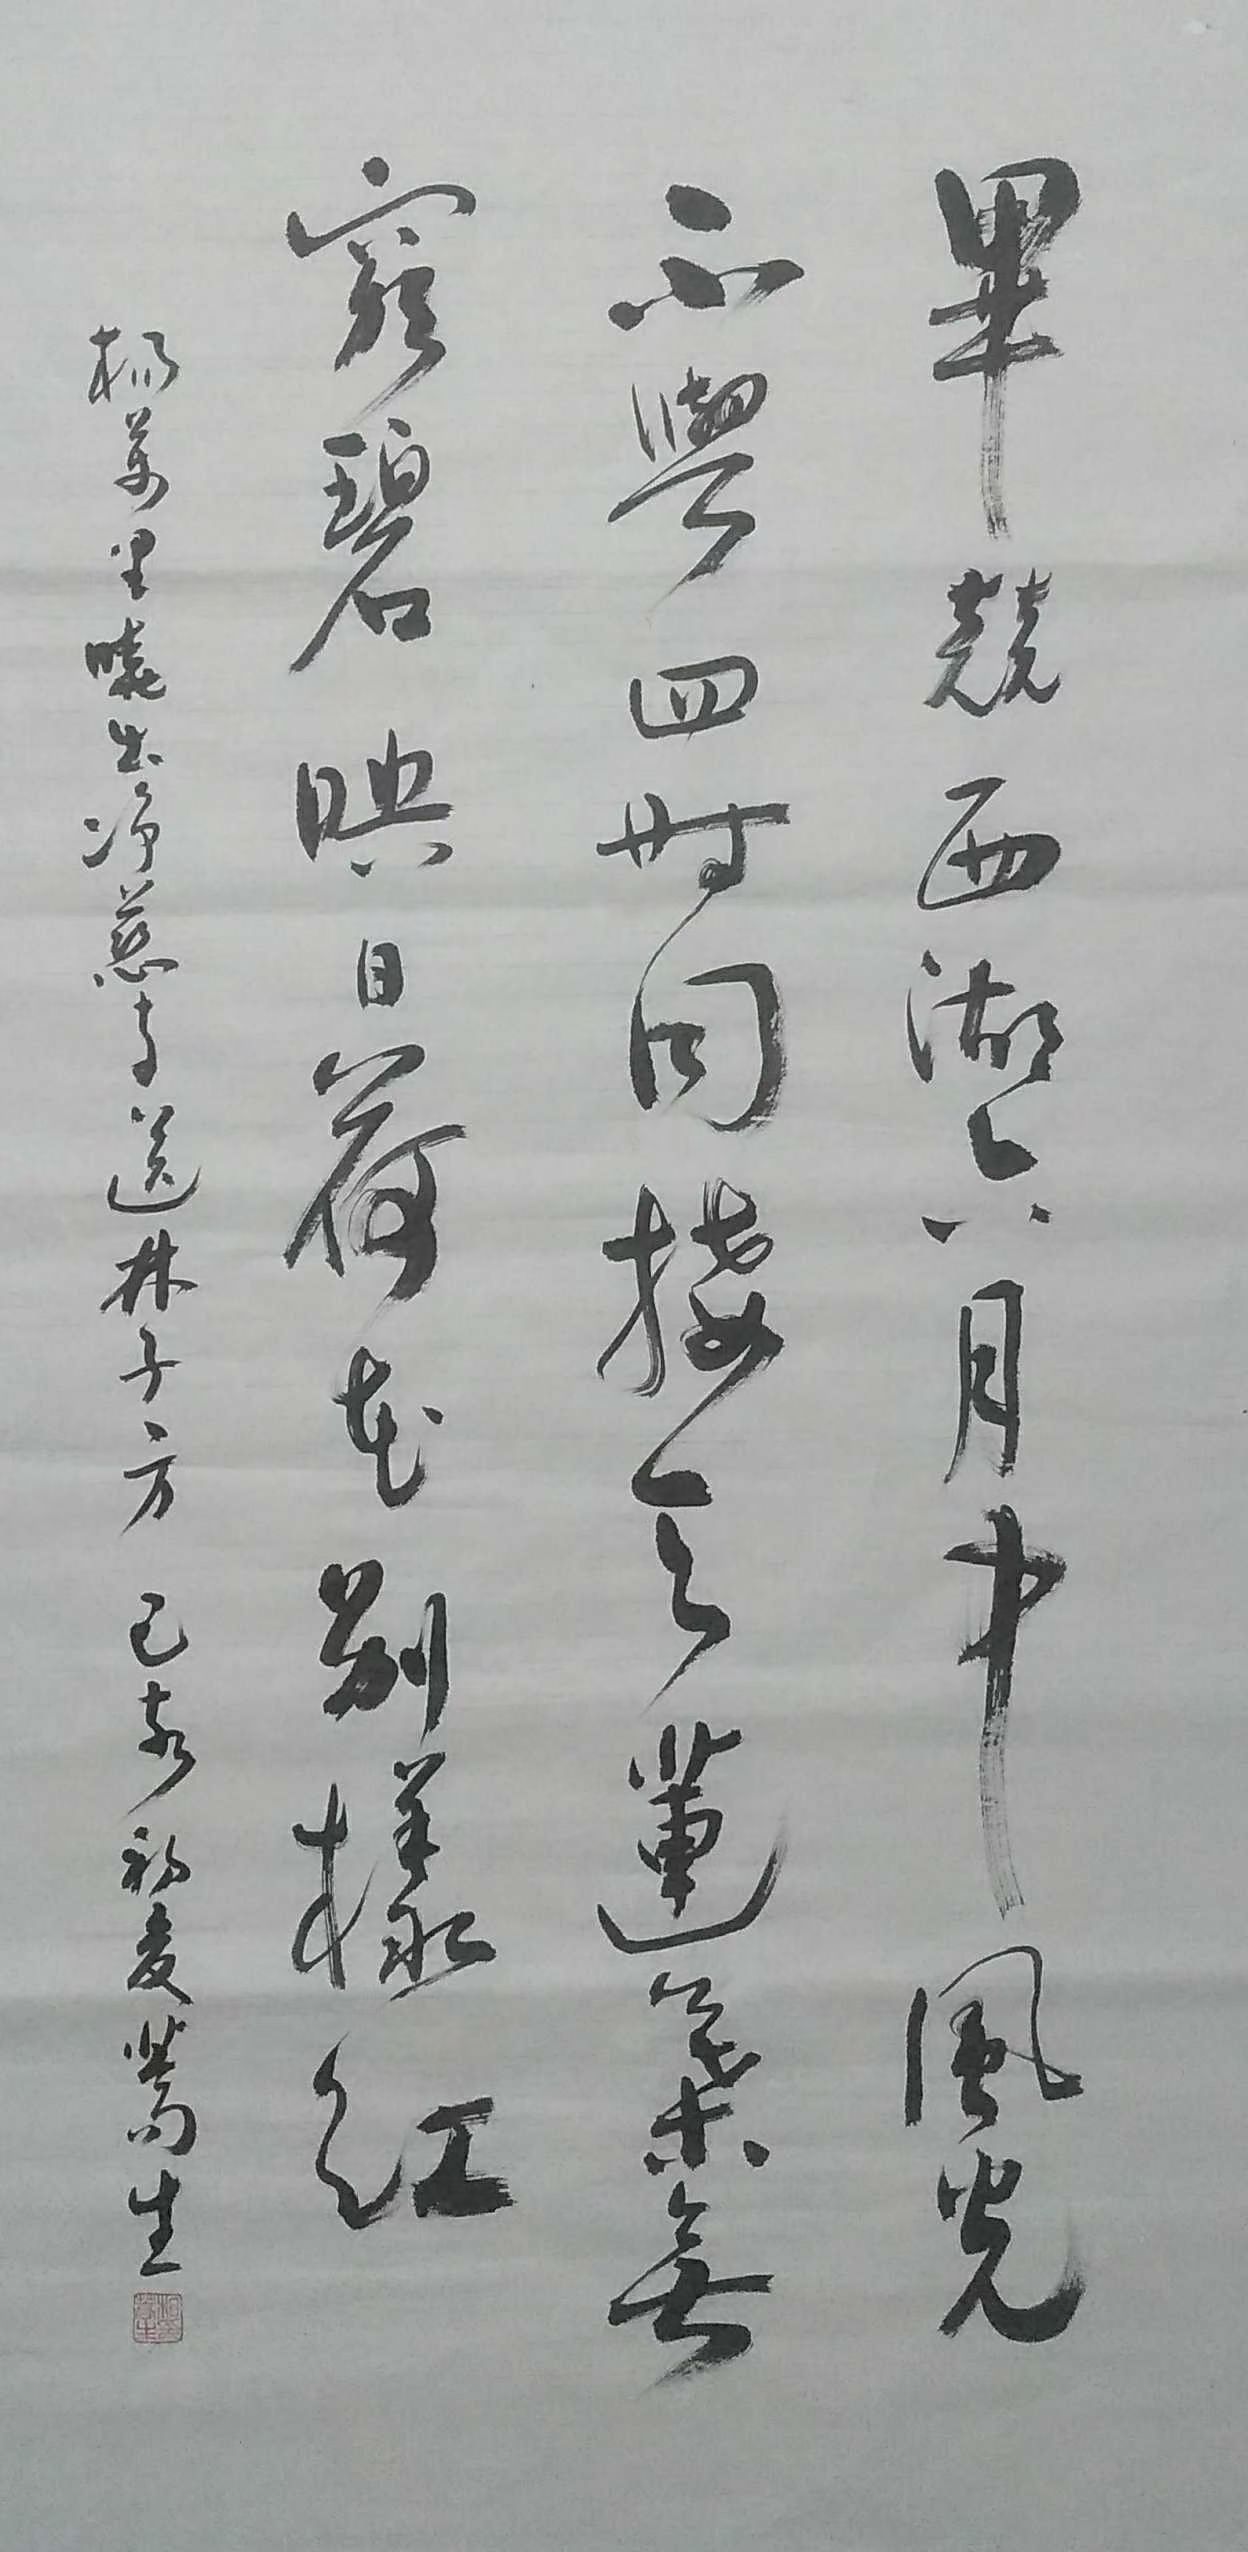 畢競西湖六月中風光
不與四時同接天蓮葉無
窮碧映日荷花別樣紅
楊萬里曉出淨慈寺送林子方 己亥初夏蒿生